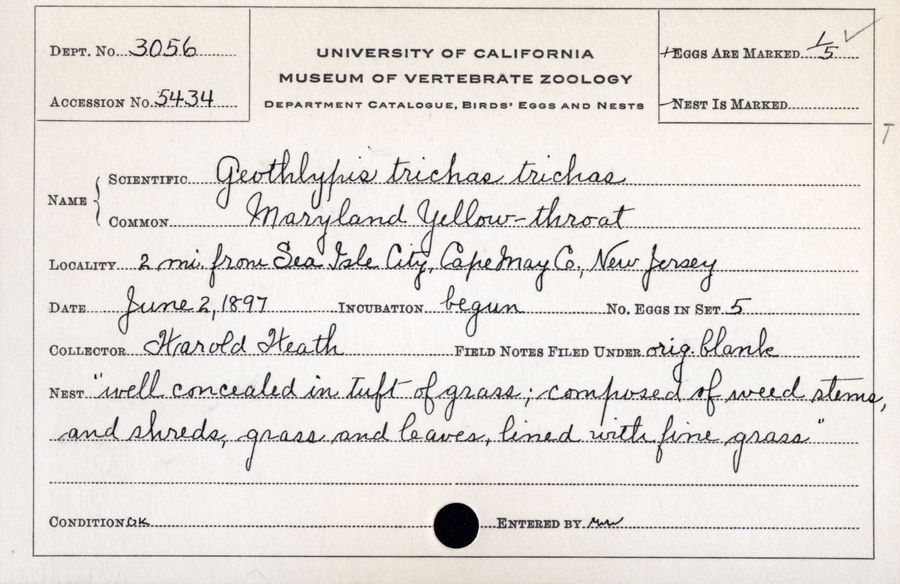 DEPT. No. 3056
ACCESSION No. 5434
UNIVERSITY OF CALIFORNIA
MUSEUM OF VERTEBRATE ZOOLOGY
DEPARTMENT CATALOGUE, BIRDS' EGGS AND NESTS
EGGS ARE MARKED 1/5 ✓
NEST IS MARKED
T
NAME
SCIENTIFIC Geothlypis trichas trichas
COMMON Maryland Yellow-throat
LOCALITY 2 mi. from Sea Isle City, Cape May Co., New Jersey
DATE June 2, 1897 INCUBATION begun NO. EGGS IN SET 5
COLLECTOR Harold Heath FIELD NOTES FILED UNDER orig. blank
NEST "well concealed in tuft of grass; composed of weed stems,
and shreds, grass and leaves, lined with fine grass"
CONDITION OK ENTERED BY